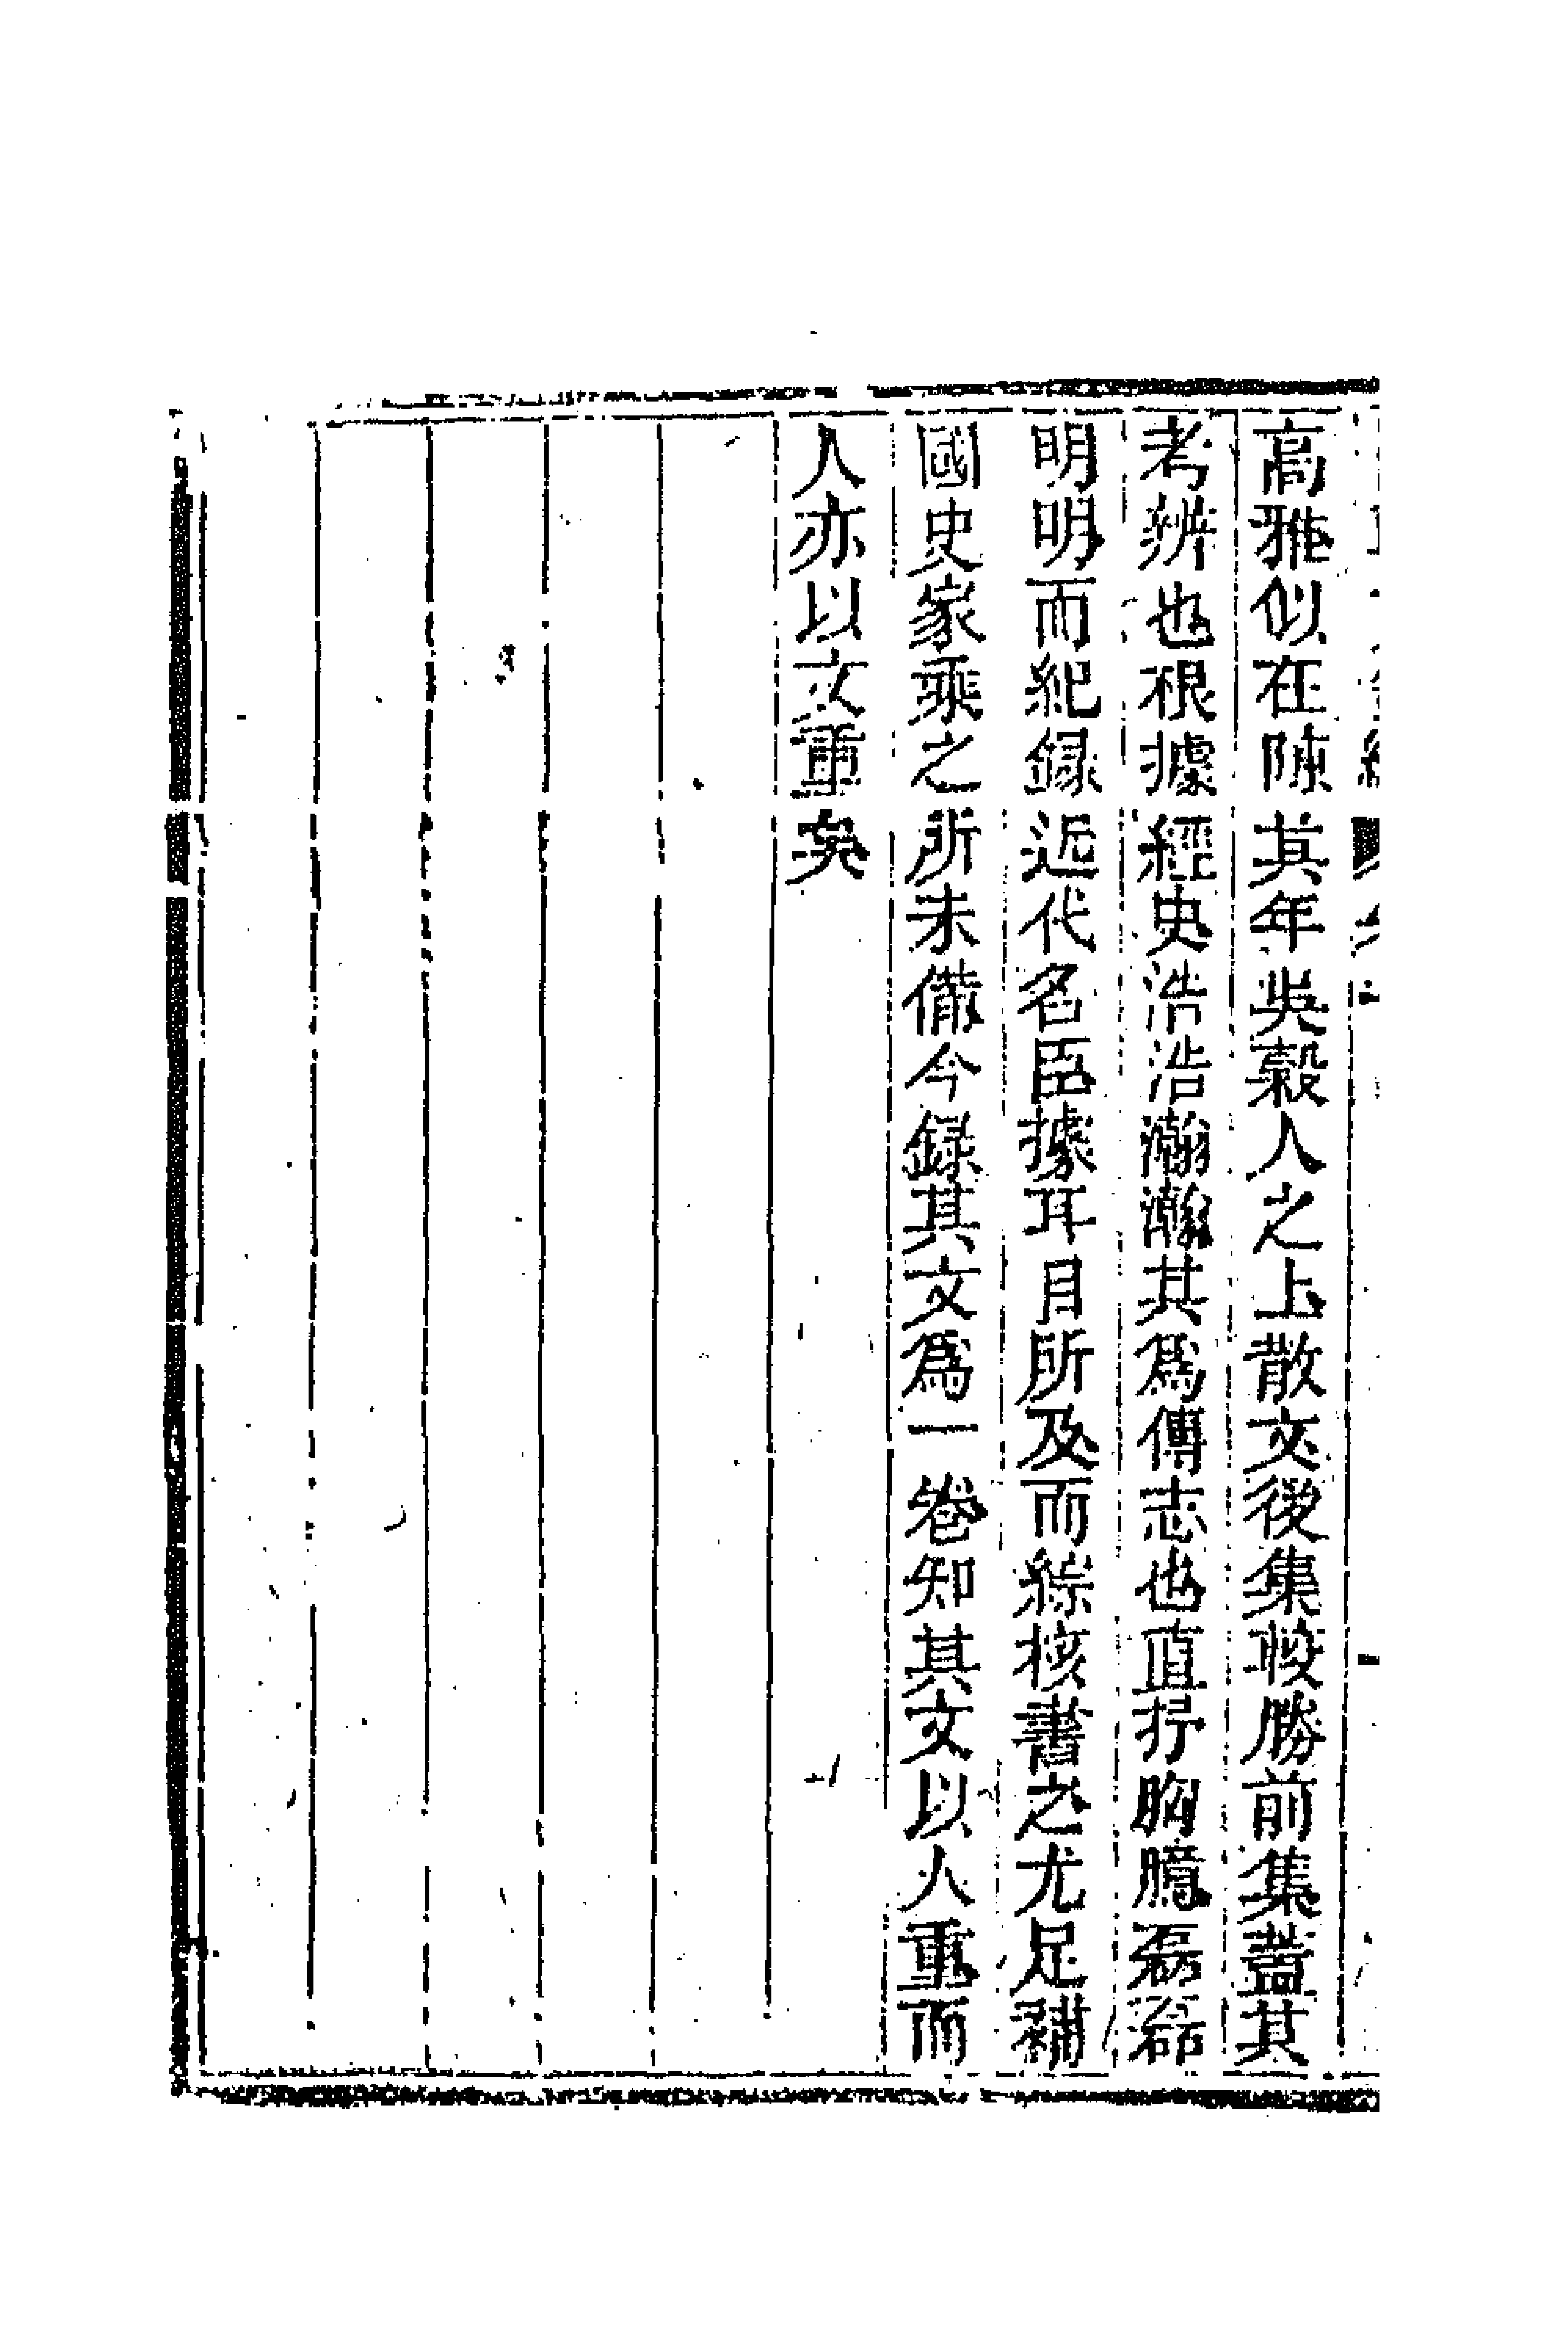 高雅似在陳其年吳穀人之上散文後集較勝前集蓋其
考辨也根據經史浩浩瀚瀚其爲傳志也直抒胸臆磊磊
明明而紀録近代名臣據耳目所及而綜核書之尤足補
國史家乘之所未備今録其文爲一卷知其文以人重而
人亦以文重矣